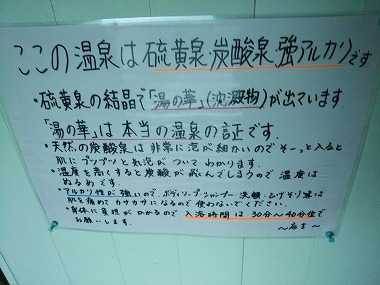 ここの温泉は硫黄泉、炭酸泉、強アルカリです。
・硫黄泉の結晶で「湯の華」(沈澱物)が出ています。
「湯の華」は本当の温泉の証です。
・天然の炭酸泉は非常に泡が細かいのでそーっと入ると
肌にプップッと気泡がついてわかります。
・温度を高くすると炭酸が飛んでしまうので温度は
ぬるめです。
・アルカリ性が強いのでボディソープ、シャンプー、洗顔、ひげそり等は
肌を痛めてカサカサになるので使わないでください。
・身体に負担がかかるので入浴時間は30分〜40分位で
お願いします。
〜店主〜